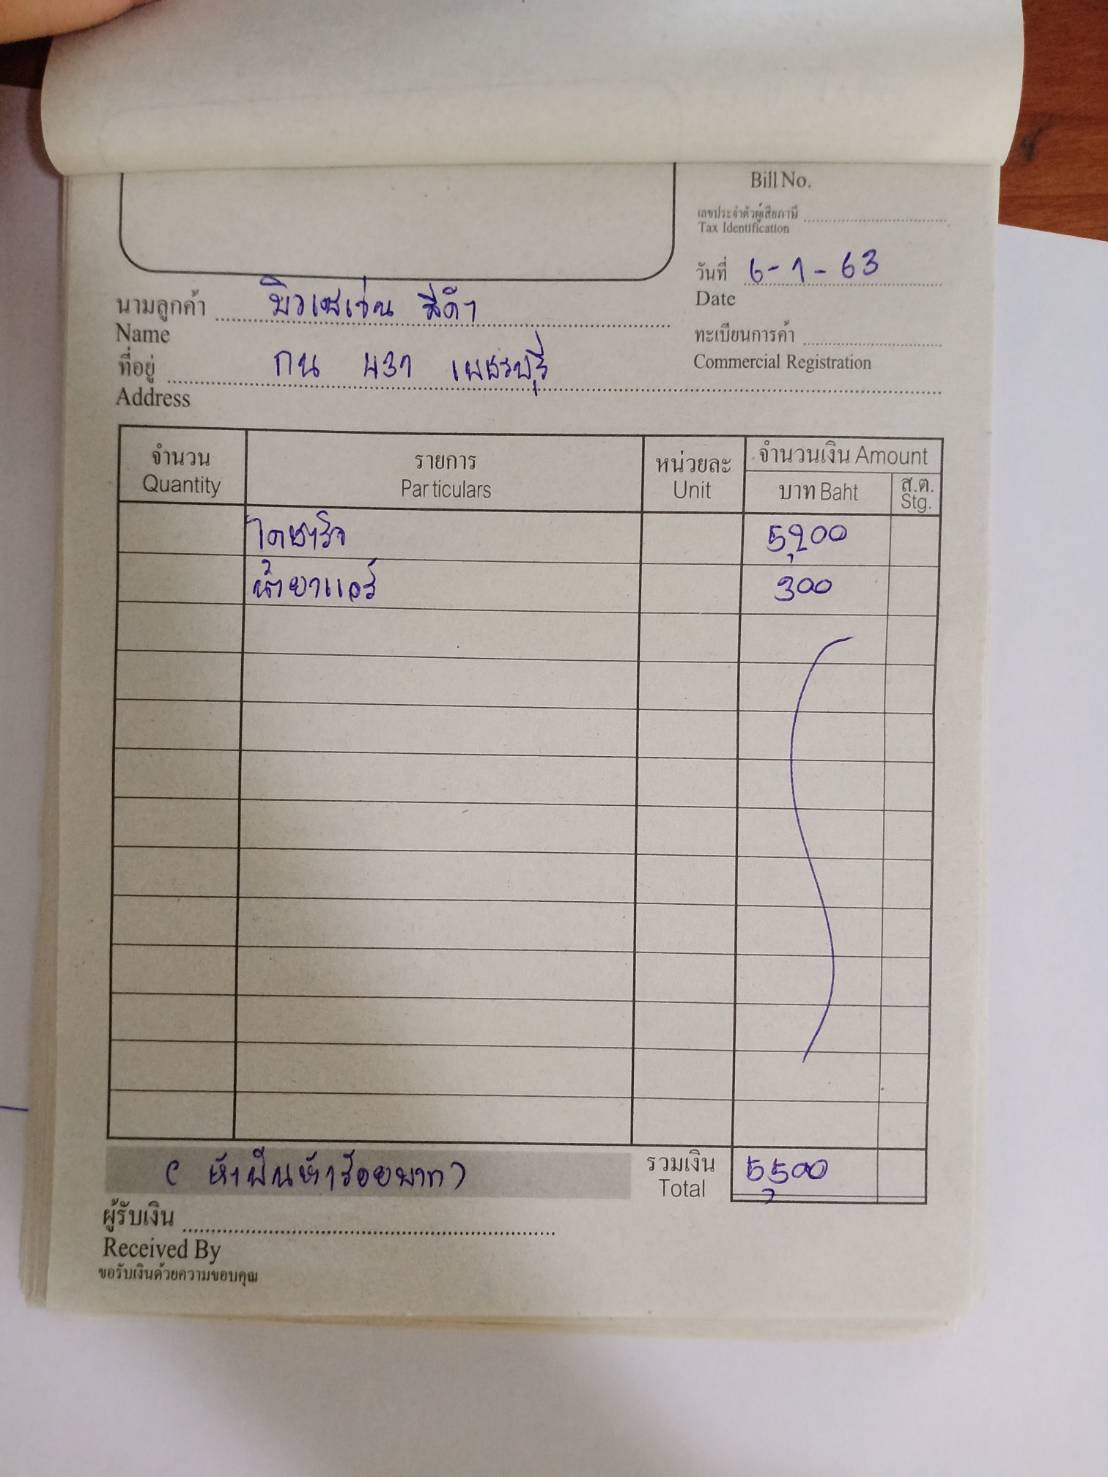 Bill No.
เลขประจำตัวผู้เสียภาษี
Tax Identification
วันที่ 6-1-63
Date
นามลูกค้า
Name
ทะเบียนการค้า
Commercial Registration
ที่อยู่ กน 431 เพชรบุรี
Address
จำนวน รายการ หน่วยละ จำนวนเงิน Amount
Quantity Particulars Unit บาท Baht ส.ต. Stg.
ไดชาร์จ 5,200
น้ำยาแอร์ 300
(ห้าพันห้าร้อยบาท) รวมเงิน 5,500
Total
ผู้รับเงิน
Received By
ขอรับเงินด้วยความขอบคุณ